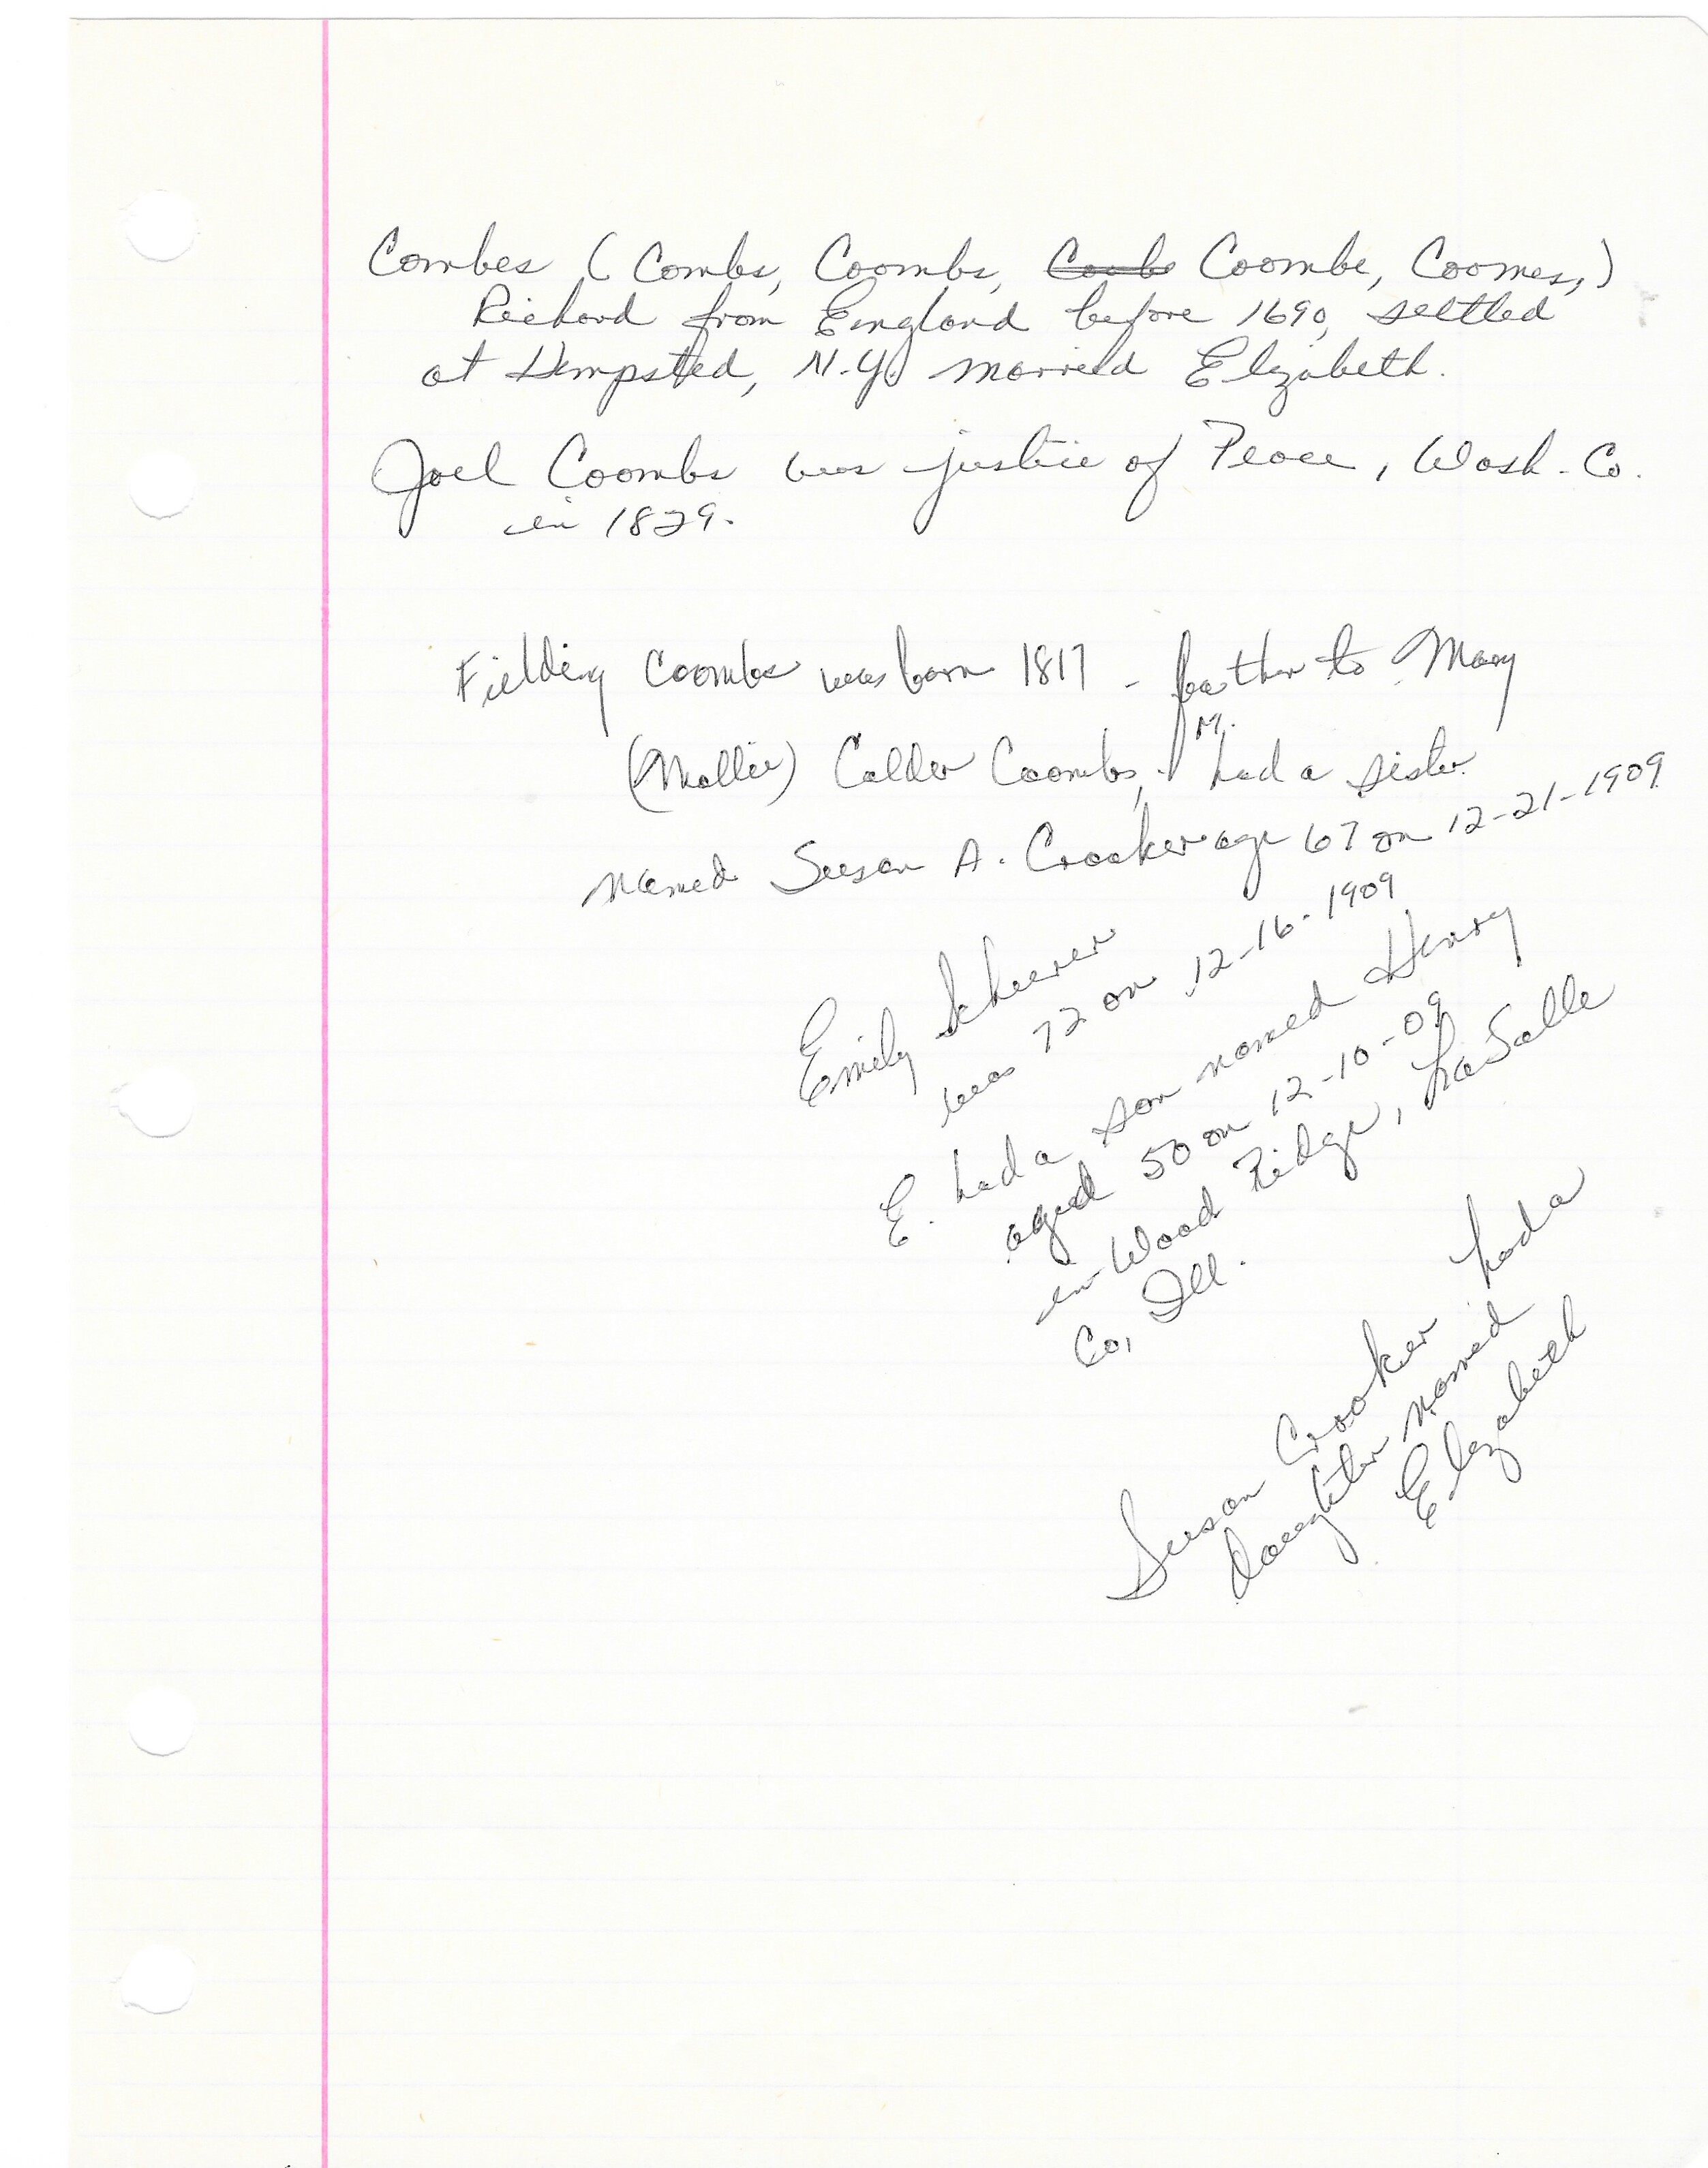 Combes (Combs, Coombs, Coombe, Coomes,)
Richard from England before 1690, settled
at Hempsted, N.Y. married Elizabeth.
Joel Coombs was justice of Peace, Wash. Co.
in 1829.
Fielding Coombs was born 1817 - father to Mary
(Mollie) Calder Coombs, M. had a sister
named Susan A. Crooker age 67 on 12-21-1909
Emily Scheerer
was 72 on 12-16-1909
E. had a son named Henry
aged 50 on 12-10-09
in Wood Ridge, LaSalle
Co, Ill.
Susan Crooker had a
daughter named
Elizabeth